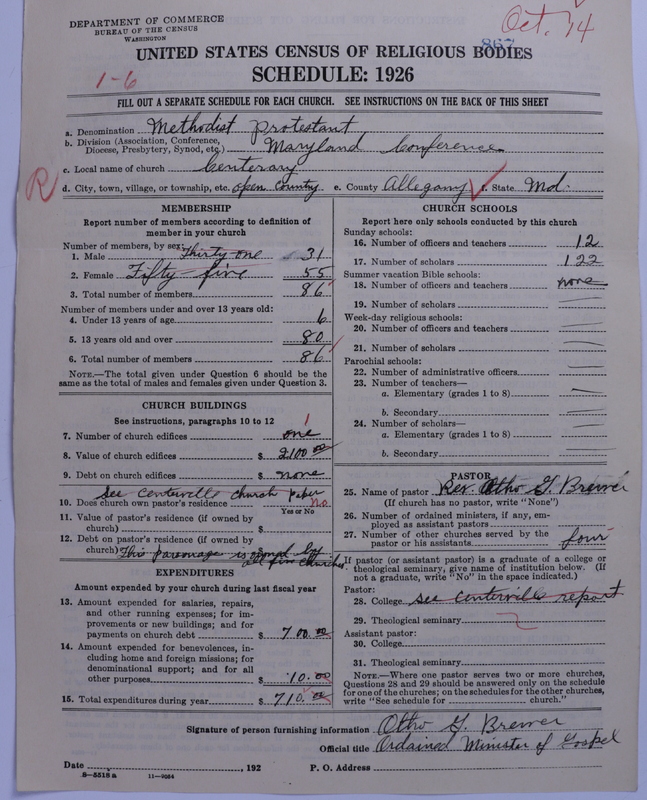 DEPARTMENT OF COMMERCE
BUREAU OF THE CENSUS
WASHINGTON
Oct. 14
867
UNITED STATES CENSUS OF RELIGIOUS BODIES
1-6
SCHEDULE: 1926
FILL OUT A SEPARATE SCHEDULE FOR EACH CHURCH. SEE INSTRUCTIONS ON THE BACK OF THIS SHEET
a. Denomination Methodist Protestant
b. Division (Association, Conference, Diocese, Presbytery, Synod, etc.) Maryland Conference
c. Local name of church Centenary
R
d. City, town, village, or township, etc. Open Country e. County Allegany f. State Md.
MEMBERSHIP
Report number of members according to definition of
member in your church
Number of members, by sex:
1. Male Thirty one 31
2. Female Fifty five 55
3. Total number of members 86
Number of members under and over 13 years old:
4. Under 13 years of age 6
5. 13 years old and over 80
6. Total number of members 86
NOTE.—The total given under Question 6 should be the
same as the total of males and females given under Question 3.
CHURCH BUILDINGS
See instructions, paragraphs 10 to 12
1
7. Number of church edifices one
8. Value of church edifices $ 2100 00
9. Debt on church edifices $ none
See Centerville church paper
10. Does church own pastor's residence No
Yes or No
11. Value of pastor's residence (if owned by
church) $
12. Debt on pastor's residence (if owned by
church) This parsonage is owned by
all five churches
EXPENDITURES
Amount expended by your church during last fiscal year
13. Amount expended for salaries, repairs,
and other running expenses; for im-
provements or new buildings; and for
payments on church debt $ 700.00
14. Amount expended for benevolences, in-
cluding home and foreign missions; for
denominational support; and for all
other purposes $ 10.00
15. Total expenditures during year $ 710.00
CHURCH SCHOOLS
Report here only schools conducted by this church
Sunday schools:
16. Number of officers and teachers 12
17. Number of scholars 122
Summer vacation Bible schools:
18. Number of officers and teachers none
19. Number of scholars
Week-day religious schools:
20. Number of officers and teachers
21. Number of scholars
Parochial schools:
22. Number of administrative officers
23. Number of teachers—
a. Elementary (grades 1 to 8)
b. Secondary
24. Number of scholars—
a. Elementary (grades 1 to 8)
b. Secondary
PASTOR
25. Name of pastor Rev. Otho G. Brewer
(If church has no pastor, write "None")
26. Number of ordained ministers, if any, em-
ployed as assistant pastors
27. Number of other churches served by the
pastor or his assistants four
If pastor (or assistant pastor) is a graduate of a college or
theological seminary, give name of institution below. (If
not a graduate, write "No" in the space indicated.)
Pastor:
28. College See Centerville report
29. Theological seminary
Assistant pastor:
30. College
31. Theological seminary
NOTE.—Where one pastor serves two or more churches,
Questions 28 and 29 should be answered only on the schedule
for one of the churches; on the schedules for the other churches,
write "See schedule for church."
Signature of person furnishing information Otho G. Brewer
Official title Ordained Minister of Gospel
Date , 192 P. O. Address
8-5518 a 11-9034